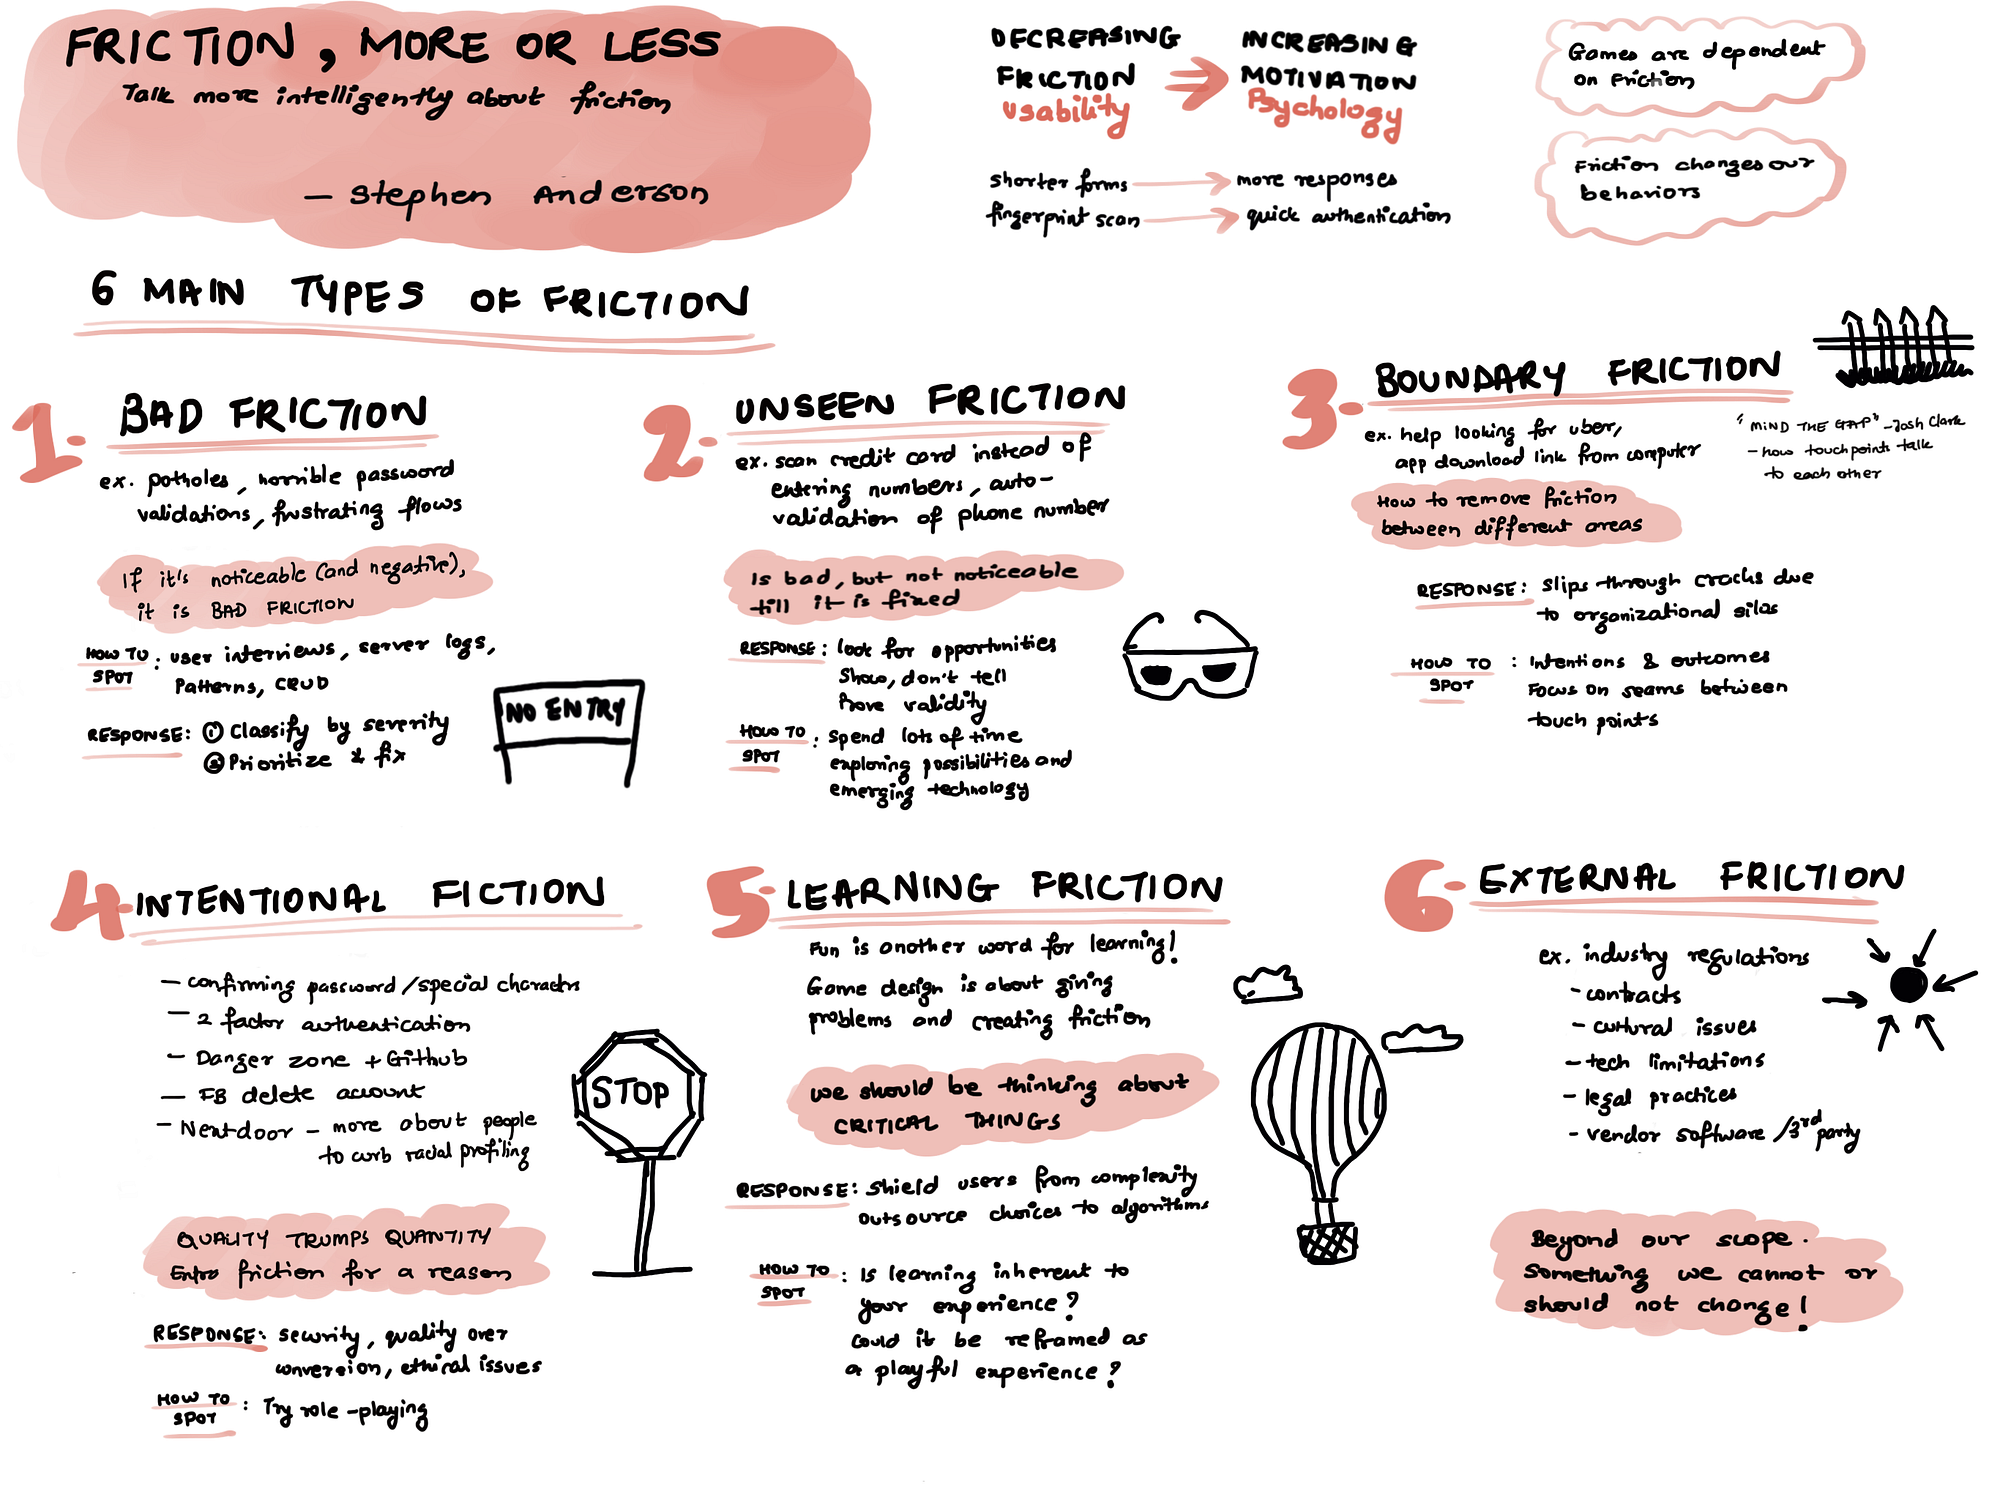 FRICTION, MORE OR LESS
Talk more intelligently about friction
— Stephen Anderson
DECREASING
FRICTION
usability
INCREASING
MOTIVATION
Psychology
shorter forms
more responses
fingerprint scan
quick authentication
Games are dependent
on Friction
Friction changes our
behaviors
6 MAIN TYPES OF FRICTION
1. BAD FRICTION
ex. potholes, horrible password
validations, frustrating flows
If it's noticeable (and negative),
it is BAD FRICTION
HOW TO
SPOT
: user interviews, server logs,
Patterns, CRUD
RESPONSE: ① Classify by severity
② Prioritize & fix
NO ENTRY
2. UNSEEN FRICTION
ex. scan credit card instead of
entering numbers, auto-
validation of phone number
Is bad, but not noticeable
till it is fixed
RESPONSE: look for opportunities
Show, don't tell
Prove validity
HOW TO
SPOT
: spend lots of time
exploring possibilities and
emerging technology
3. BOUNDARY FRICTION
ex. help looking for uber,
app download link from computer
"MIND THE GAP" - Josh Clark
- how touchpoints talk
to each other
How to remove friction
between different areas
RESPONSE: slips through cracks due
to organizational silos
HOW TO
SPOT
: Intentions & outcomes
Focus on seams between
touch points
4. INTENTIONAL FICTION
— confirming password/special characters
— 2 factor authentication
— Danger zone + Github
— FB delete account
— Nextdoor — more about people
to curb racial profiling
STOP
QUALITY TRUMPS QUANTITY
Extra friction for a reason
RESPONSE: security, quality over
conversion, ethical issues
HOW TO
SPOT
: Try role-playing
5. LEARNING FRICTION
Fun is another word for learning!
Game design is about giving
problems and creating friction
We should be thinking about
CRITICAL THINGS
RESPONSE: shield users from complexity
outsource choices to algorithms
HOW TO
SPOT
: Is learning inherent to
your experience?
Could it be reframed as
a playful experience?
6. EXTERNAL FRICTION
ex. industry regulations
- contracts
- cultural issues
- tech limitations
- legal practices
- vendor software /3rd party
Beyond our scope.
Something we cannot or
should not change!